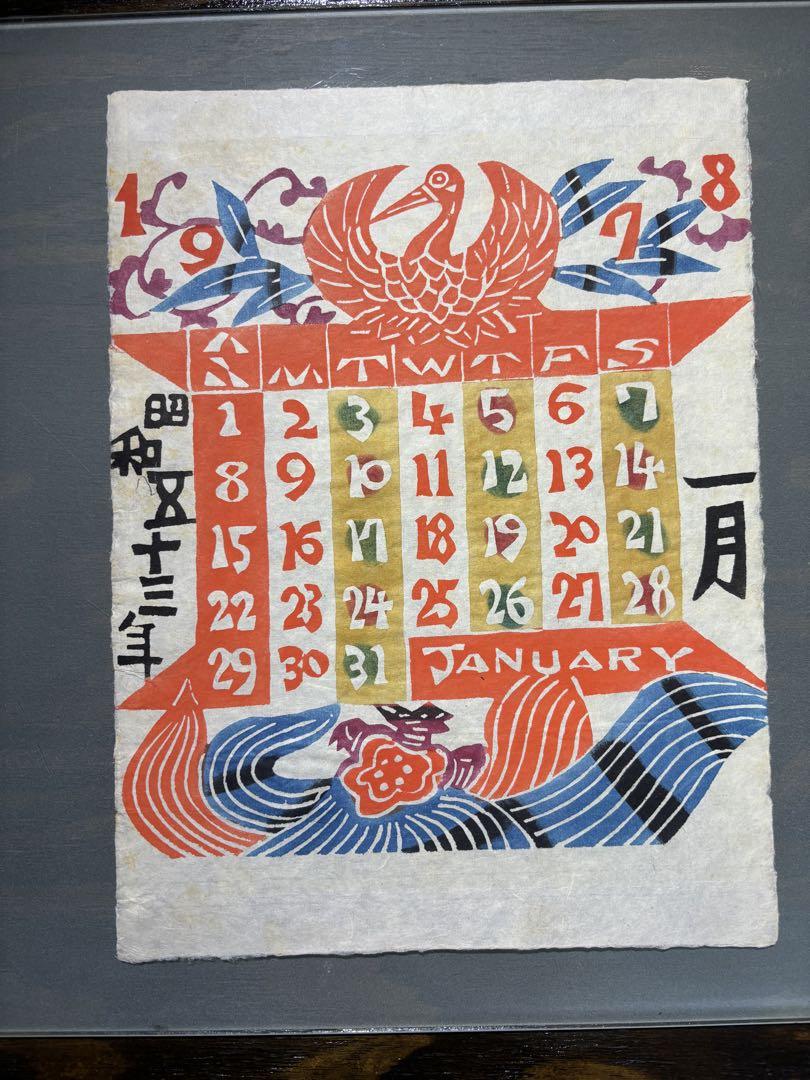 1 9 7 8
S M T W T F S
1 2 3 4 5 6 7
8 9 10 11 12 13 14
15 16 17 18 19 20 21
22 23 24 25 26 27 28
29 30 31
JANUARY
一月
昭和五十三年